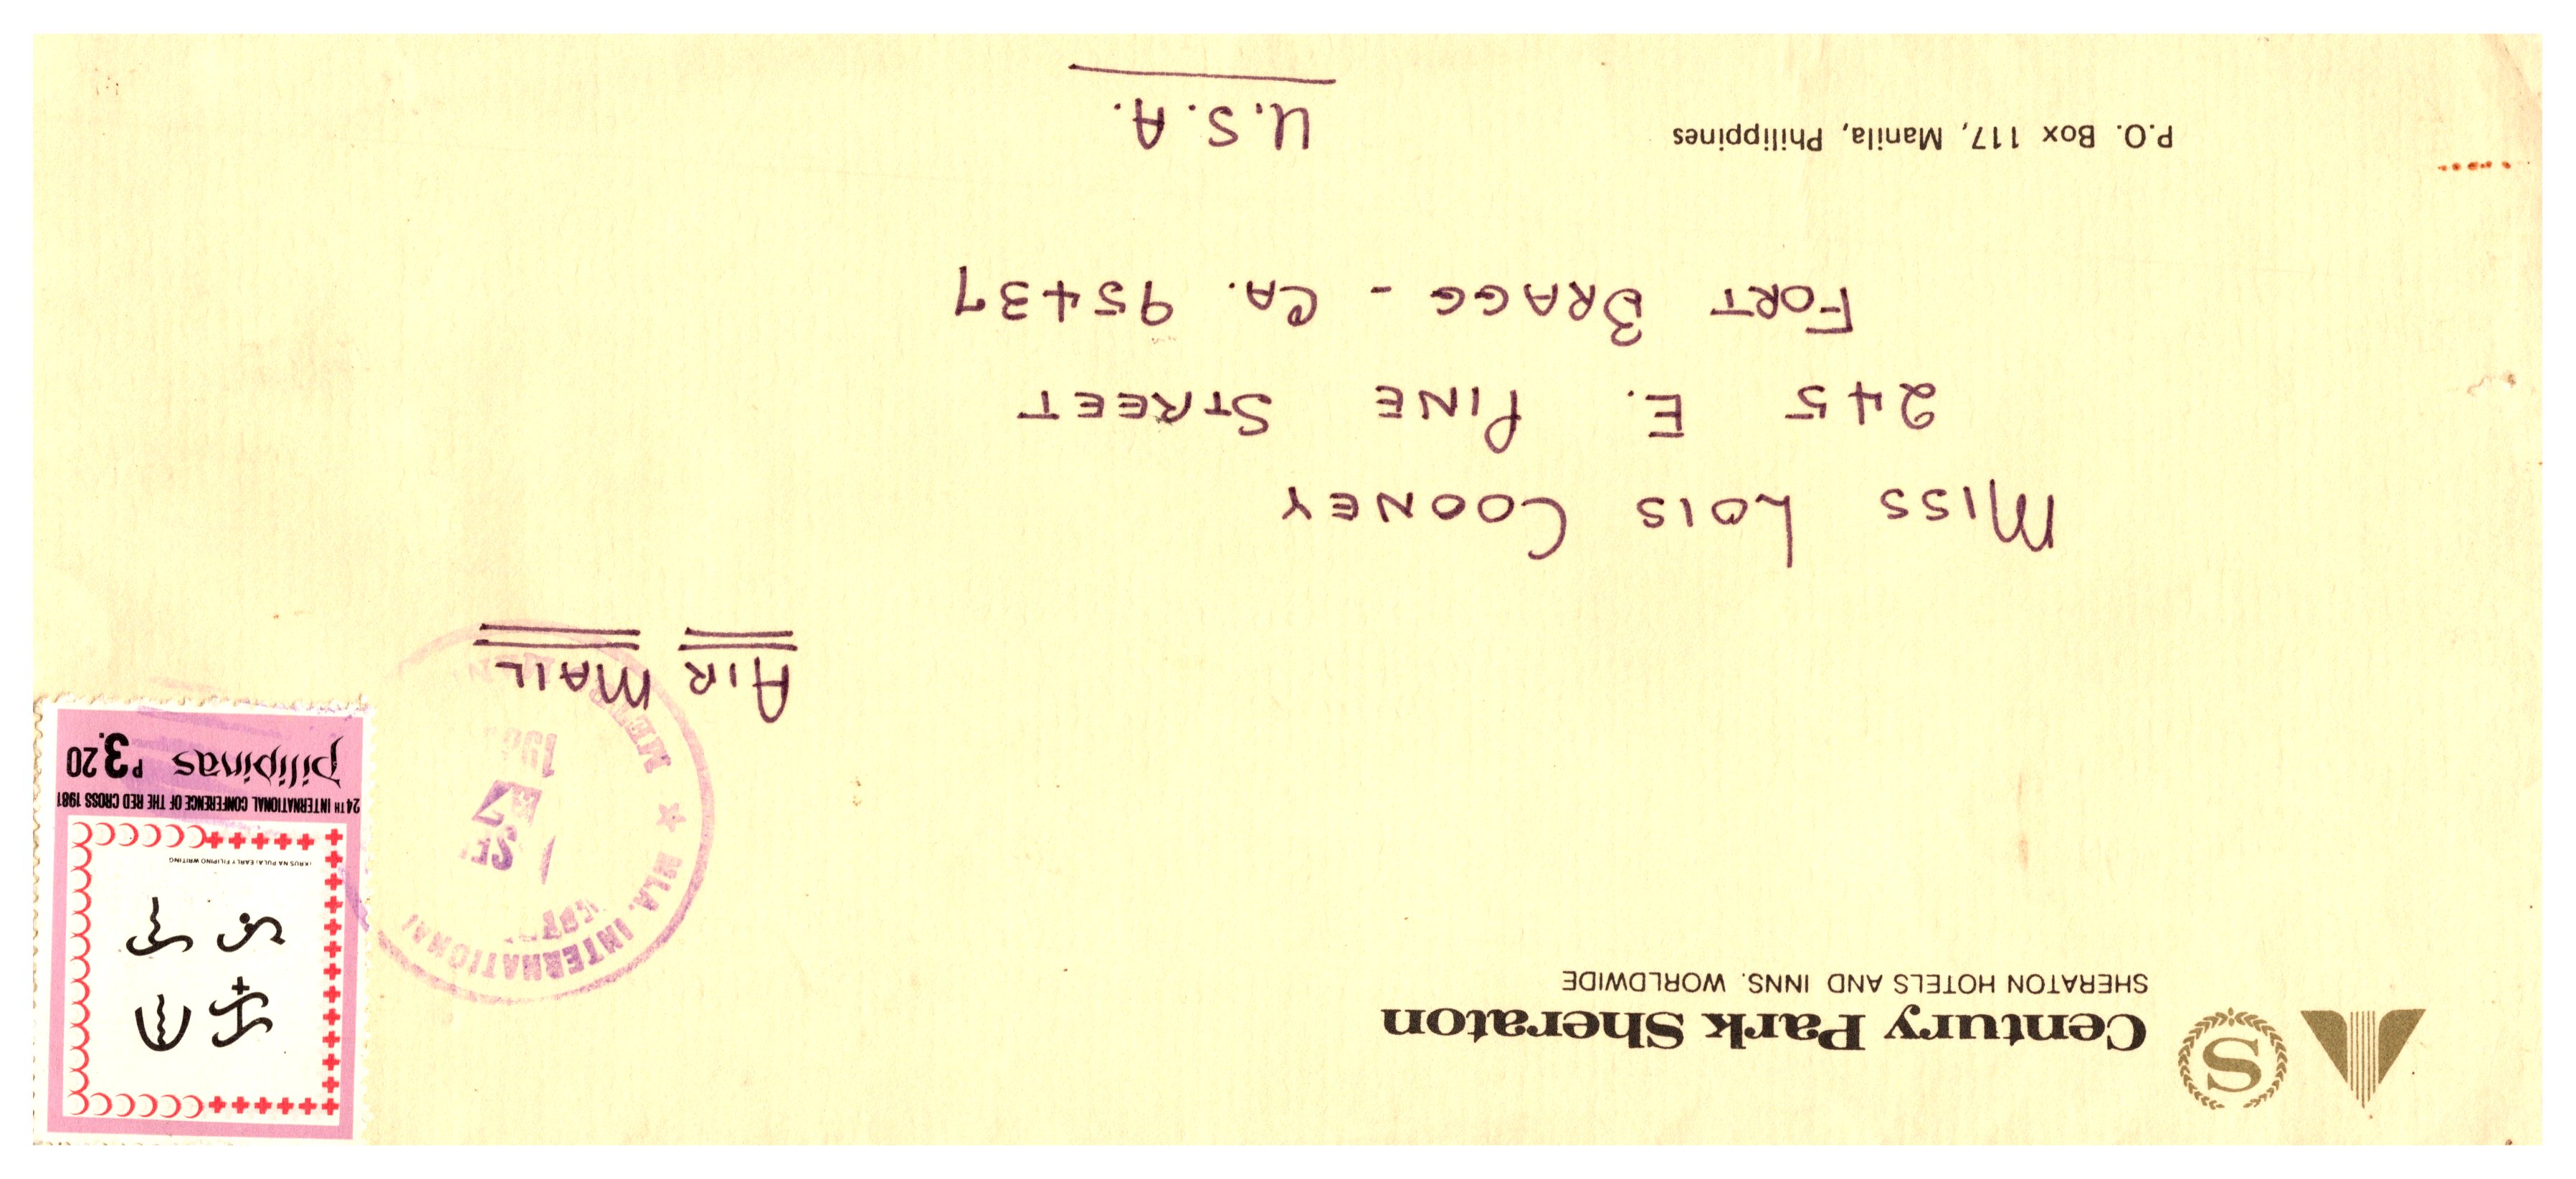 Century Park Sheraton
SHERATON HOTELS AND INNS. WORLDWIDE
S
MLA. INTERNATIONAL
SE
7
AIR MAIL
MISS LOIS COONEY
245 E. PINE STREET
FORT BRAGG - CA. 95437
U.S.A.
P.O. Box 117, Manila, Philippines
ᜃᜓᜇᜓᜐ᜔
EARLY FILIPINO WRITING
24TH INTERNATIONAL CONFERENCE OF THE RED CROSS 1981
pilipinas P3.20